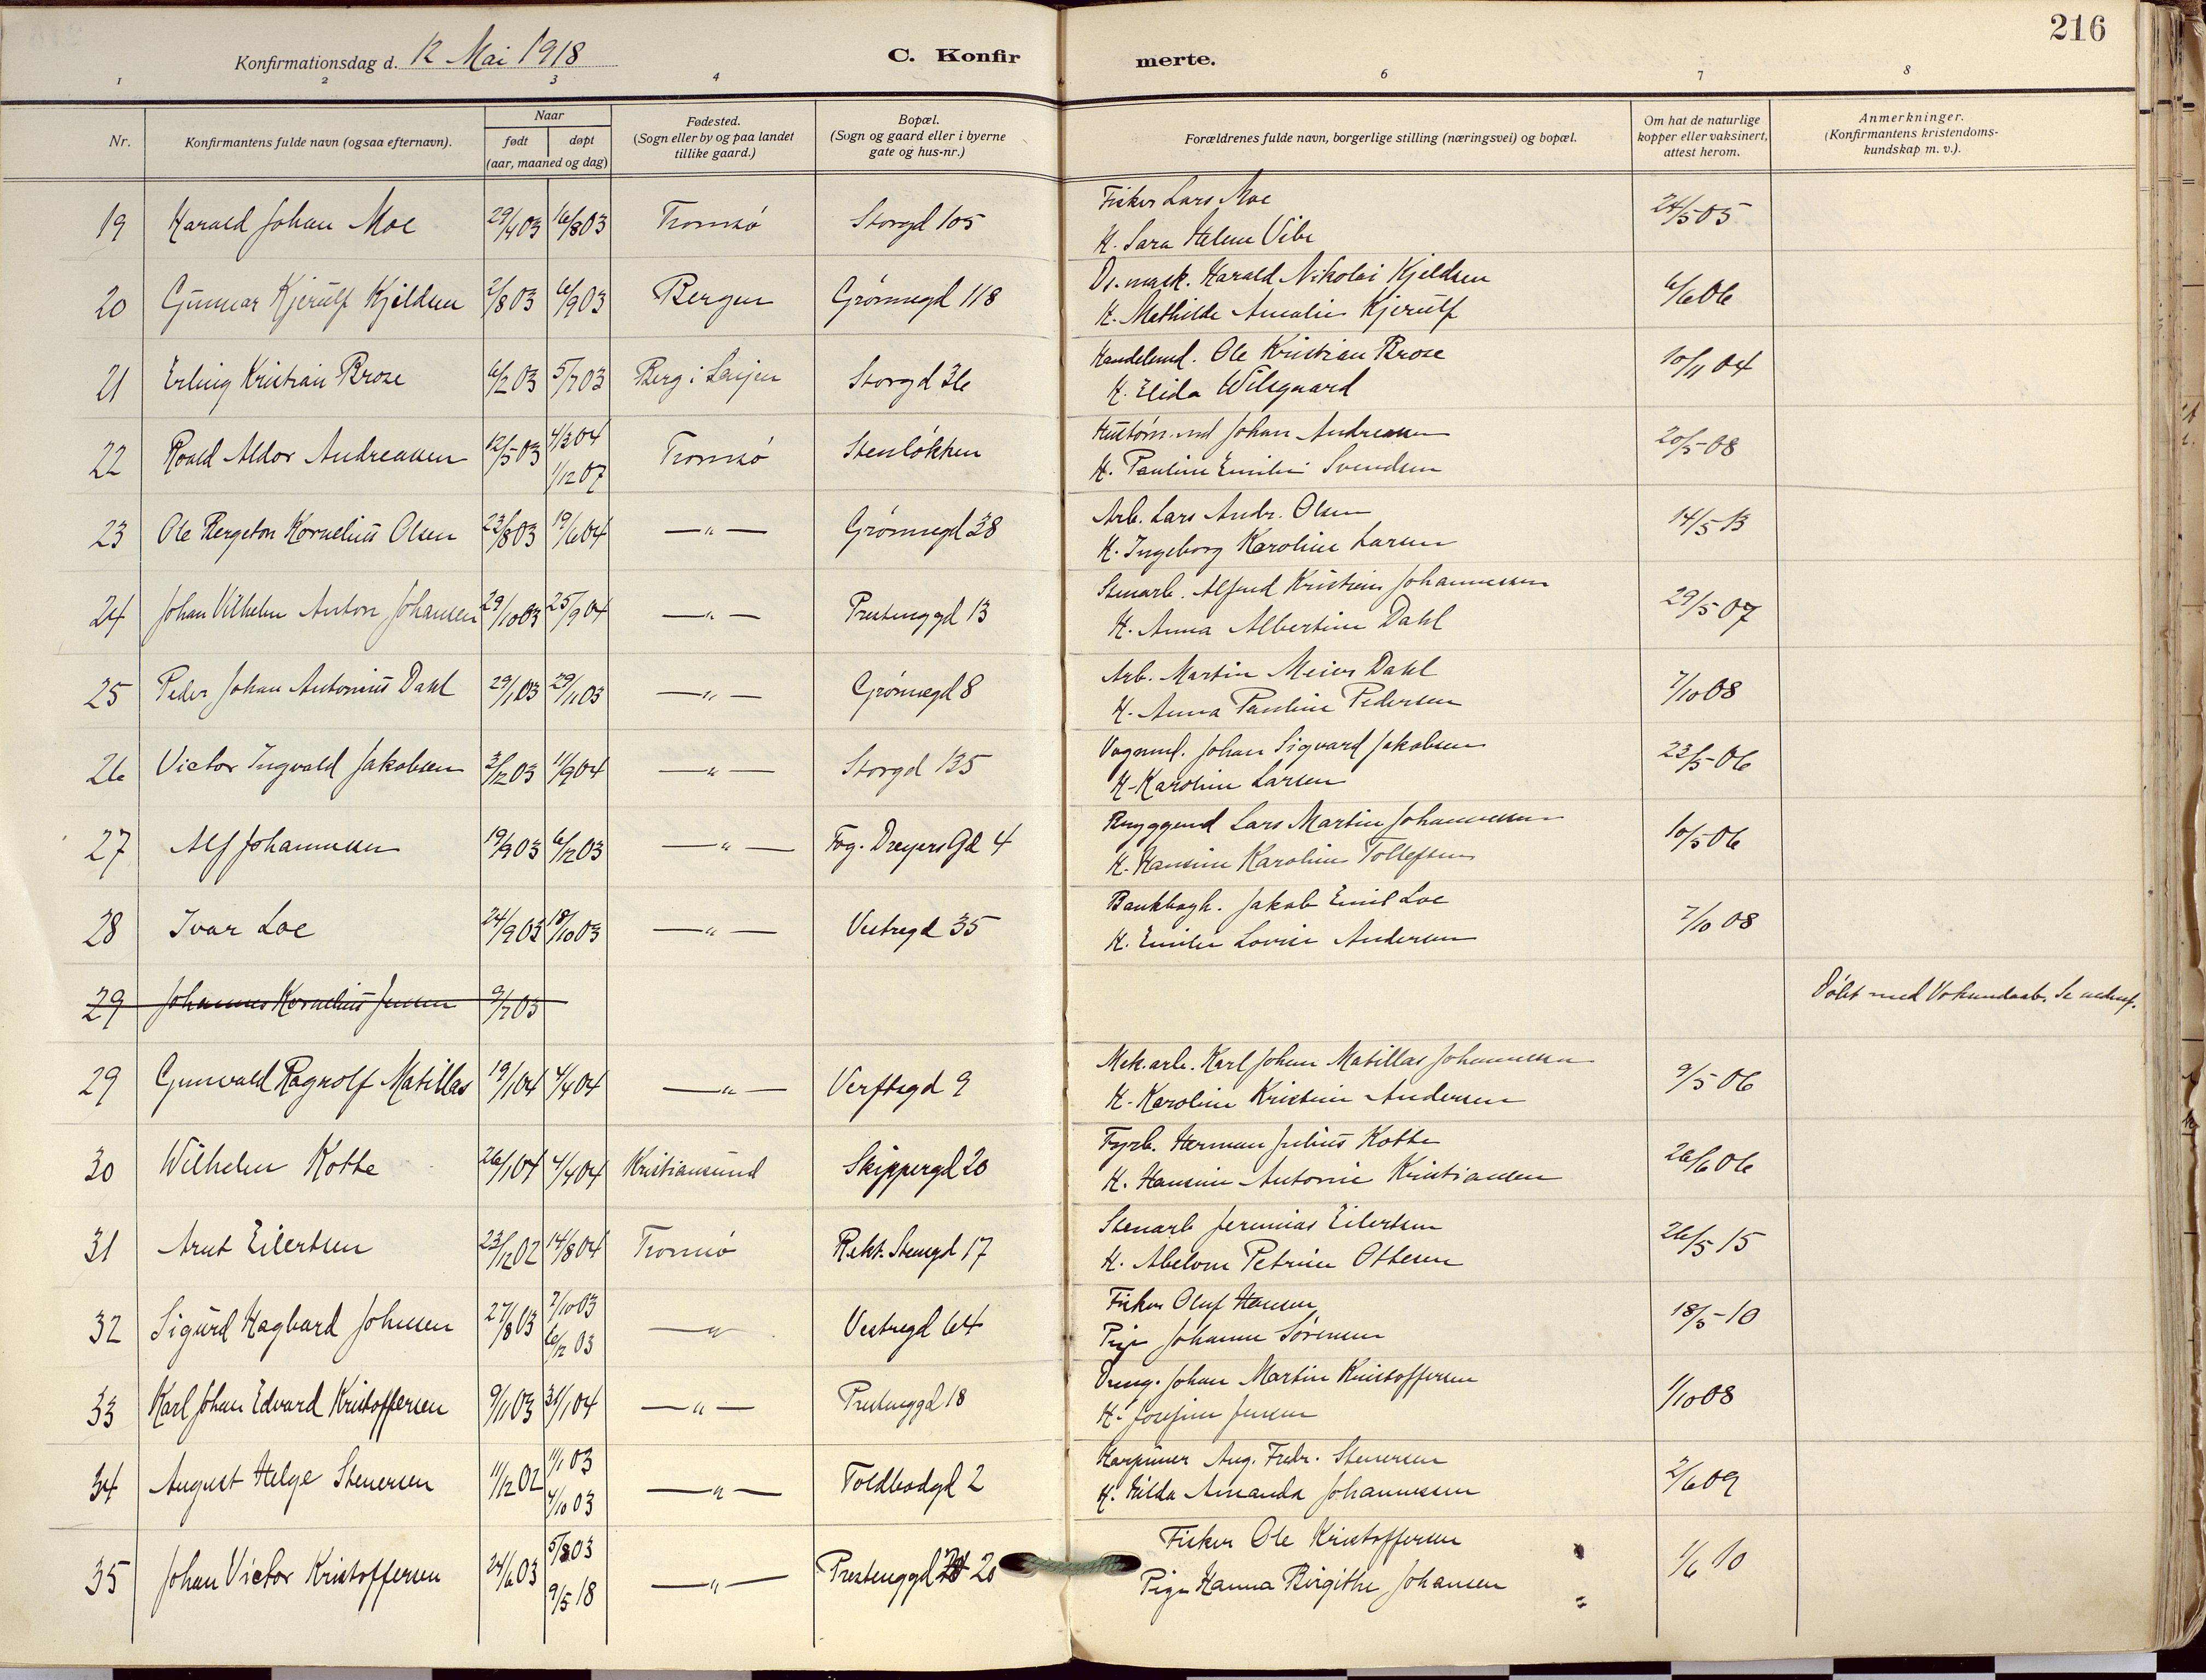 216
Konfirmationsdag d. 12 Mai 1918
C. Konfirmerte.
1 2 3 4 6 7 8
Nr.
Konfirmantens fulde navn (ogsaa efternavn).
Naar
født døpt
(aar, maaned og dag)
Fødested.
(Sogn eller by og paa landet
tillike gaard.)
Bopæl.
(Sogn og gaard eller i byerne
gate og hus-nr.)
Forældrenes fulde navn, borgerlige stilling (næringsvei) og bopæl.
Om hat de naturlige
kopper eller vaksinert,
attest herom.
Anmerkninger.
(Konfirmantens kristendoms-
kundskap m. v.).
19 Harald Johan Moe 29/4 03 16/8 03 Tromsø Storgd 105 Fisker Lars Moe 24/5 05
H. Sara Helene Vibe
20 Gunnar Kjerulf Kjeldsen 2/8 03 6/9 03 Bergen Grønnegd 118 Ds. mask. Harald Nikolai Kjeldsen 6/6 06
H. Mathilde Amalie Kjerulf
21 Erling Kristian Brose 6/2 03 5/7 03 Berg i Senjen Storgd 36 Handelsmd. Ole Kristian Brose 10/11 04
H. Elida Wilsgaard
22 Roald Aldor Andreassen 12/5 03 4/3 04 Tromsø Stenløkken Johan Andreassen 20/5 08
1/12 07 H. Pauline Emilie Svendsen
23 Ole Bergeton Kornelius Olsen 23/8 03 19/6 04 —"— Grønnegd 38 Arb. Lars Andr. Olsen 14/5 13
H. Ingeborg Karoline Larsen
24 Johan Vilhelm Anton Johansen 29/10 03 25/9 04 —"— Prestenggd 13 Stenarb. Alfred Kristian Johannessen 29/5 07
H. Anna Albertine Dahl
25 Peder Johan Antonius Dahl 29/1 03 29/11 03 —"— Grønnegd 8 Arb. Martin Meier Dahl 7/10 08
H. Anna Pauline Pedersen
26 Victor Ingvald Jakobsen 3/12 03 11/9 04 —"— Storgd 135 Vognmd. Johan Sigvard Jakobsen 23/5 06
H. Karoline Larsen
27 Alf Johannessen 19/9 03 6/12 03 —"— Fog. Dreyers Gd 4 Lars Martin Johannessen 10/5 06
H. Hansine Karoline Tollefsen
28 Ivar Loe 24/9 03 18/10 03 —"— Vestregd 35 Bankbogh. Jakob Emil Loe 7/10 08
H. Emilie Lovise Andersen
29 Johannes Kornelius Jensen 9/7 03 Døbt med
29 Gunvald Ragnolf Matillas 19/1 04 4/4 04 —"— Verftsgd 9 Mek. arb. Karl Johan Matillas Johannessen 9/5 06
H. Karoline Kristine Andersen
30 Wilhelm Kotte 26/1 04 4/4 04 Kristiansund Skippergd 20 Fyrb. Herman Julius Kotte 26/6 06
H. Hansine Antonie Kristiansen
31 Arnt Eilertsen 23/12 02 14/8 04 Tromsø Rekt. Stengd 17 Stenarb Jeremias Eilertsen 26/5 15
H. Abelone Petrine Ottesen
32 Sigurd Hagbard Johnsen 27/8 03 7/10 03 —"— Vestregd 64 Fisker Oluf Hansen 18/5-10
6/12 03 Pige Johanne Sørensen
33 Karl Johan Edvard Kristoffersen 9/11 03 31/1 04 —"— Prestenggd 18 Johan Martin Kristoffersen 1/10 08
H. Josefine Jensen
34 August Helge Stenersen 11/12 02 11/1 03 —"— Toldbodgd 2 Harpuner Aug. Fredr. Stenersen 2/6 09
4/10 03 H. Hilda Amanda Johannessen
35 Johan Victor Kristoffersen 24/6 03 5/8 03 —"— Prestenggd 20 Fisker Ole Kristoffersen 1/6 10
9/5 18 Pige Hanna Birgithe Johansen